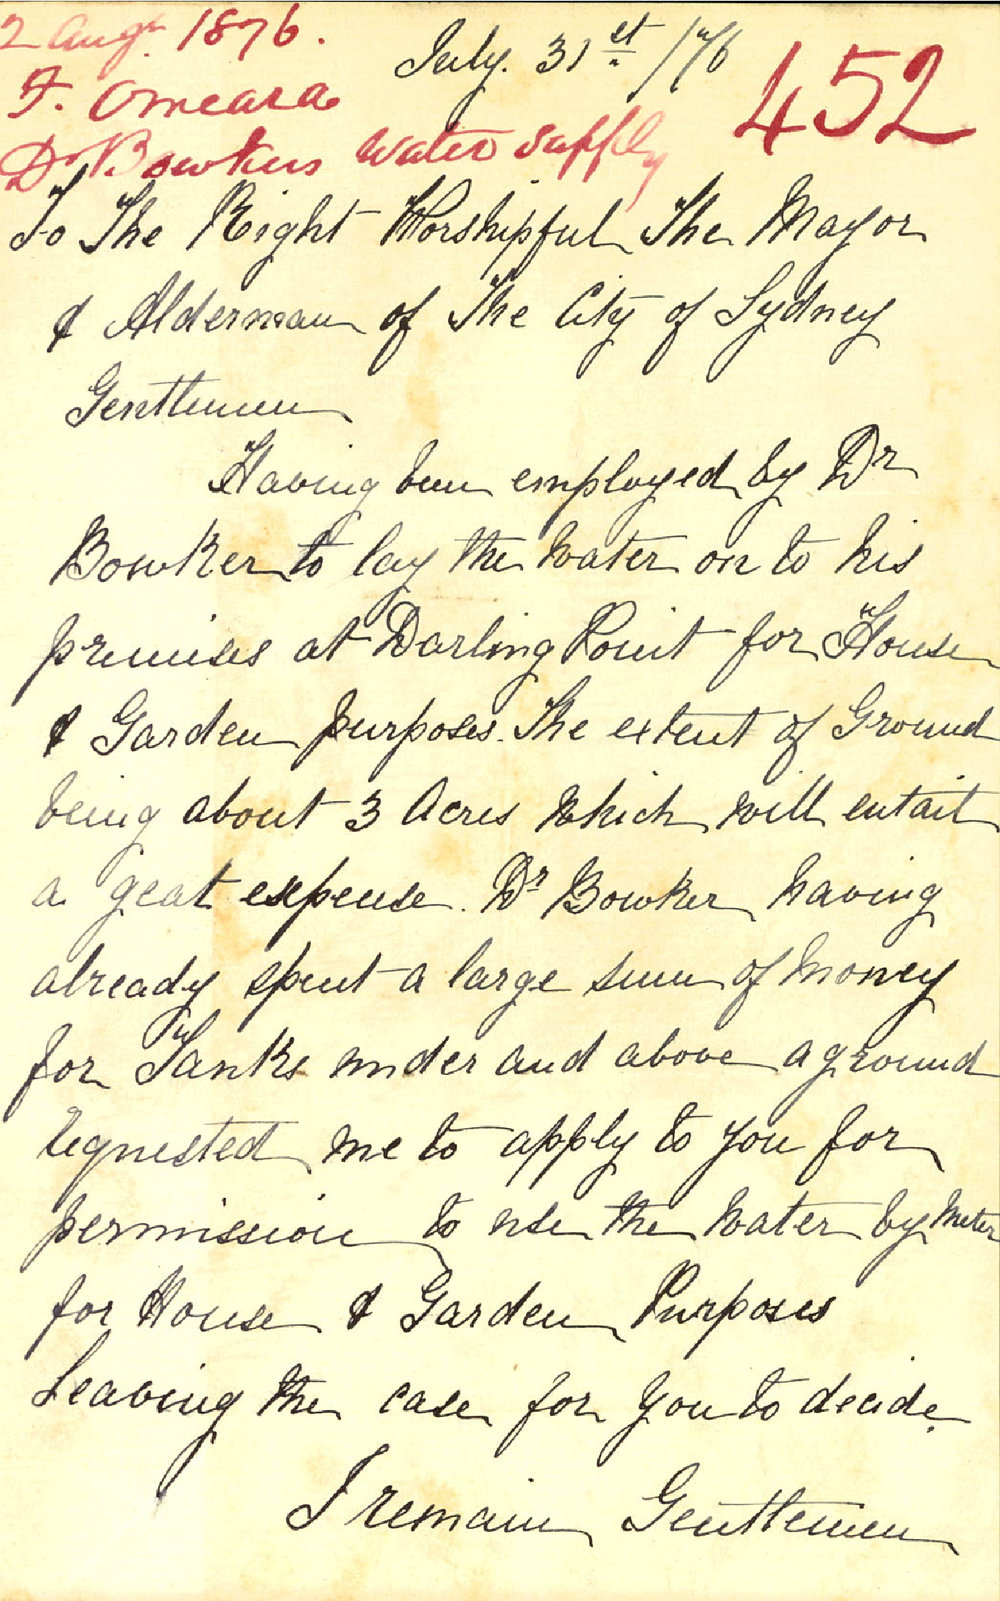 2 Augt 1876.
F. Omeara
Dr Bowkers water supply
452
July. 31st /76
To The Right Worshipful The Mayor
& Alderman of The City of Sydney
Gentlemen
Having been employed by Dr
Bowker to lay the water on to his
premises at Darling Point for House
& Garden purposes. The extent of Ground
being about 3 Acres which will entail
a geat expense. Dr Bowker having
already spent a large sum of money
for Tanks under and above a ground
requested me to apply to you for
permission to use the water by meter
for House & Garden Purposes
Leaving the case for you to decide
I remain Gentlemen